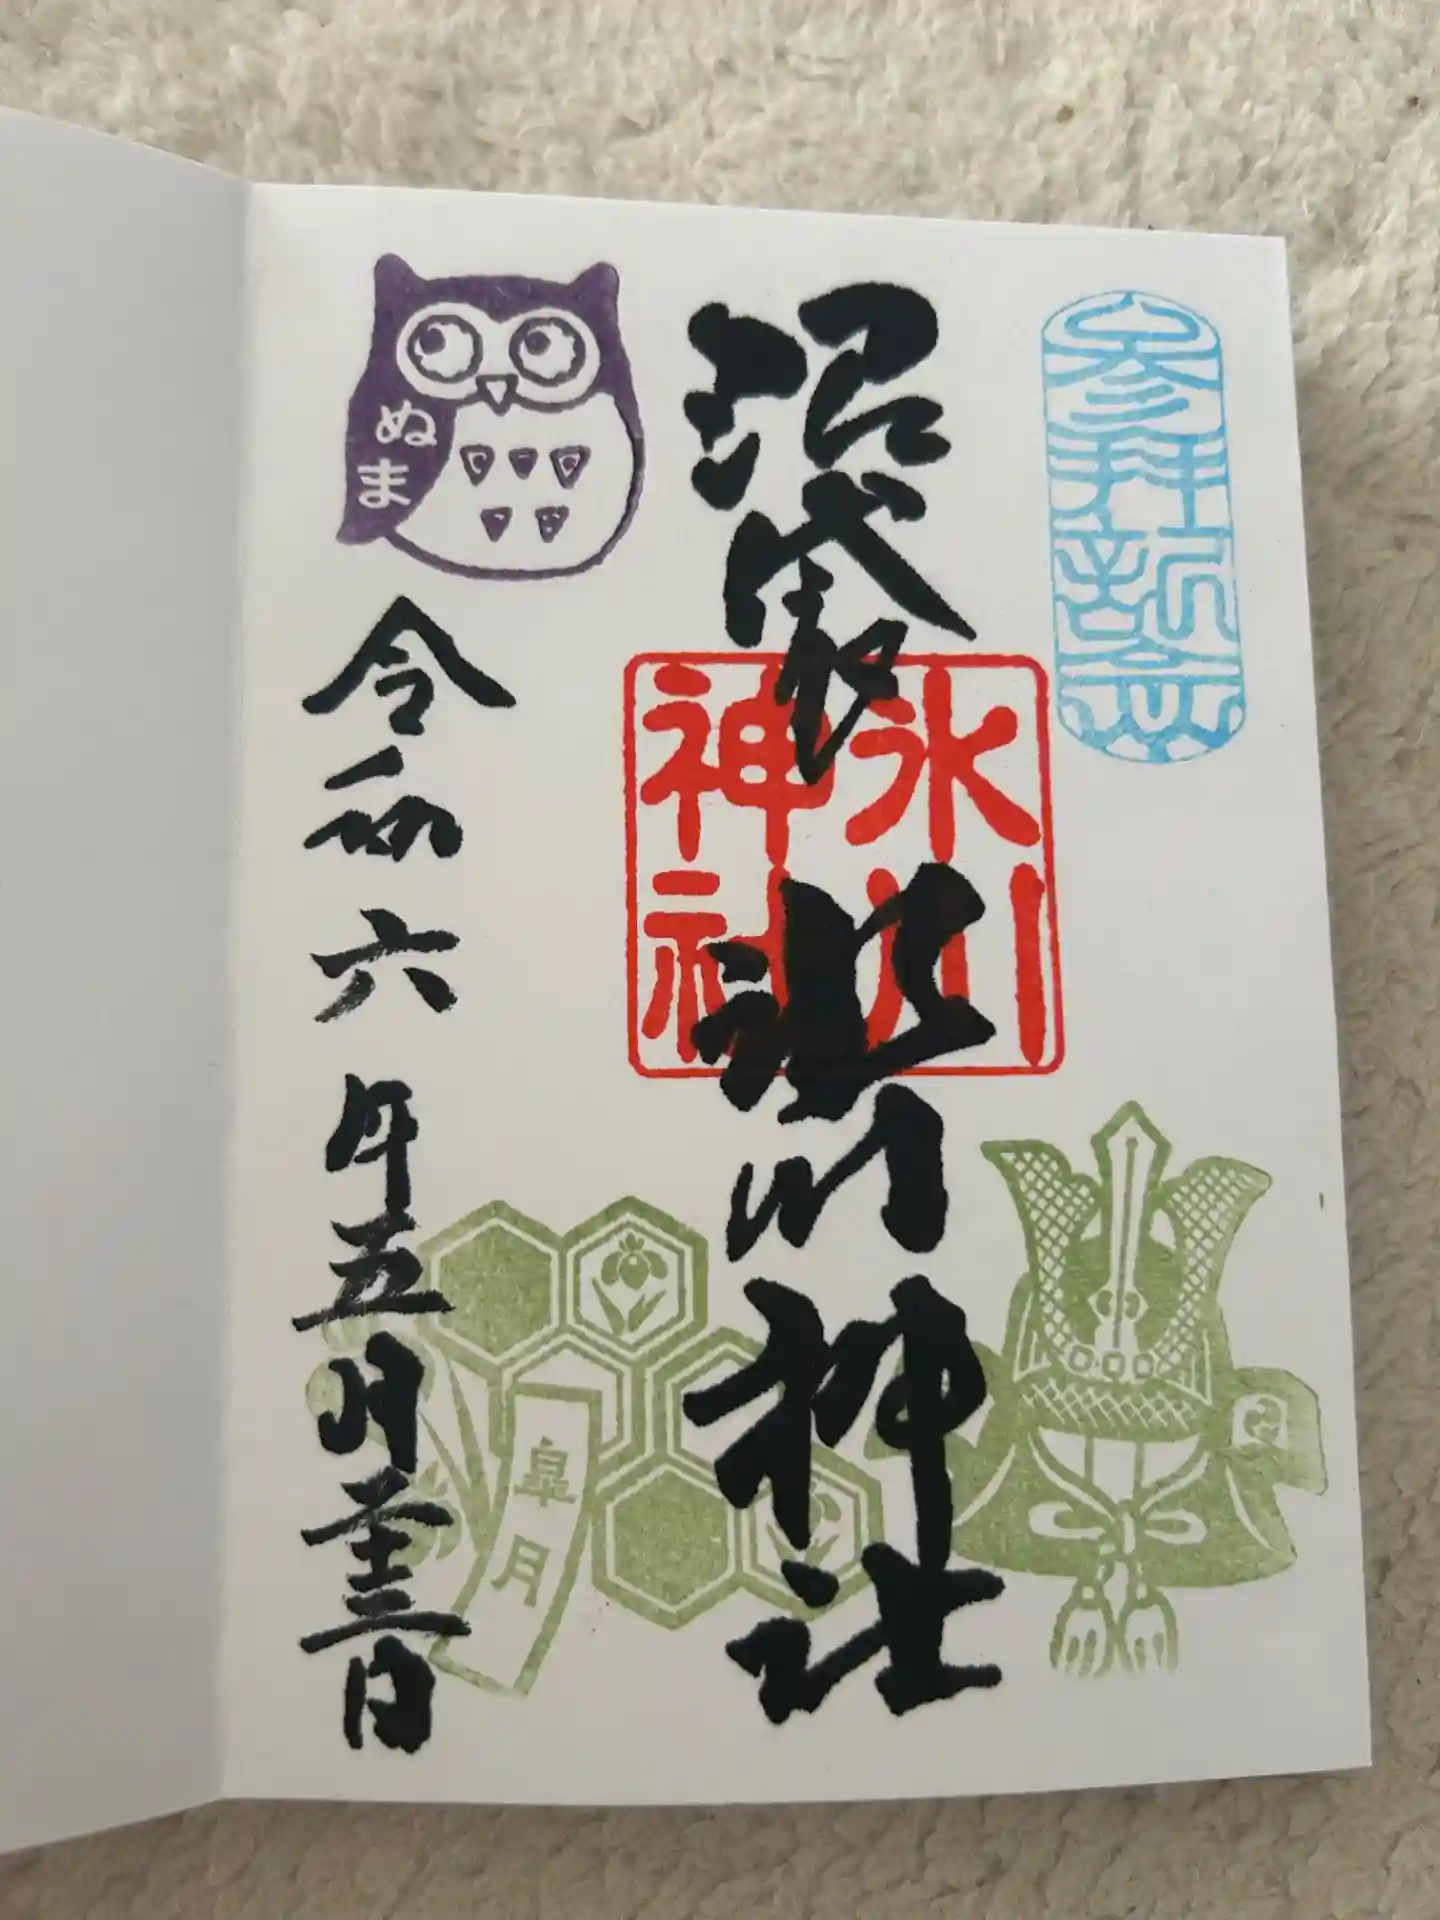 参拝記念
沼袋氷川神社
氷川
神社
ぬま
令和六年五月三日
皐月